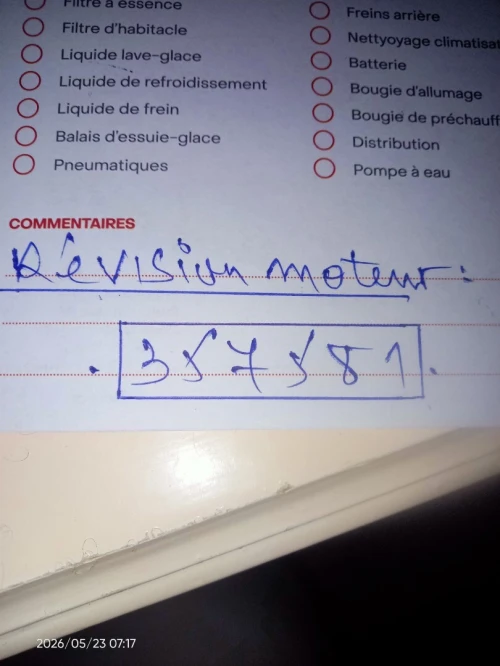 Filtre à essence
Filtre d'habitacle
Liquide lave-glace
Liquide de refroidissement
Liquide de frein
Balais d'essuie-glace
Pneumatiques
Freins arrière
Nettyoyage climatisat
Batterie
Bougie d'allumage
Bougie de préchauff
Distribution
Pompe à eau
COMMENTAIRES
Révision moteur :
2026/05/23 07:17